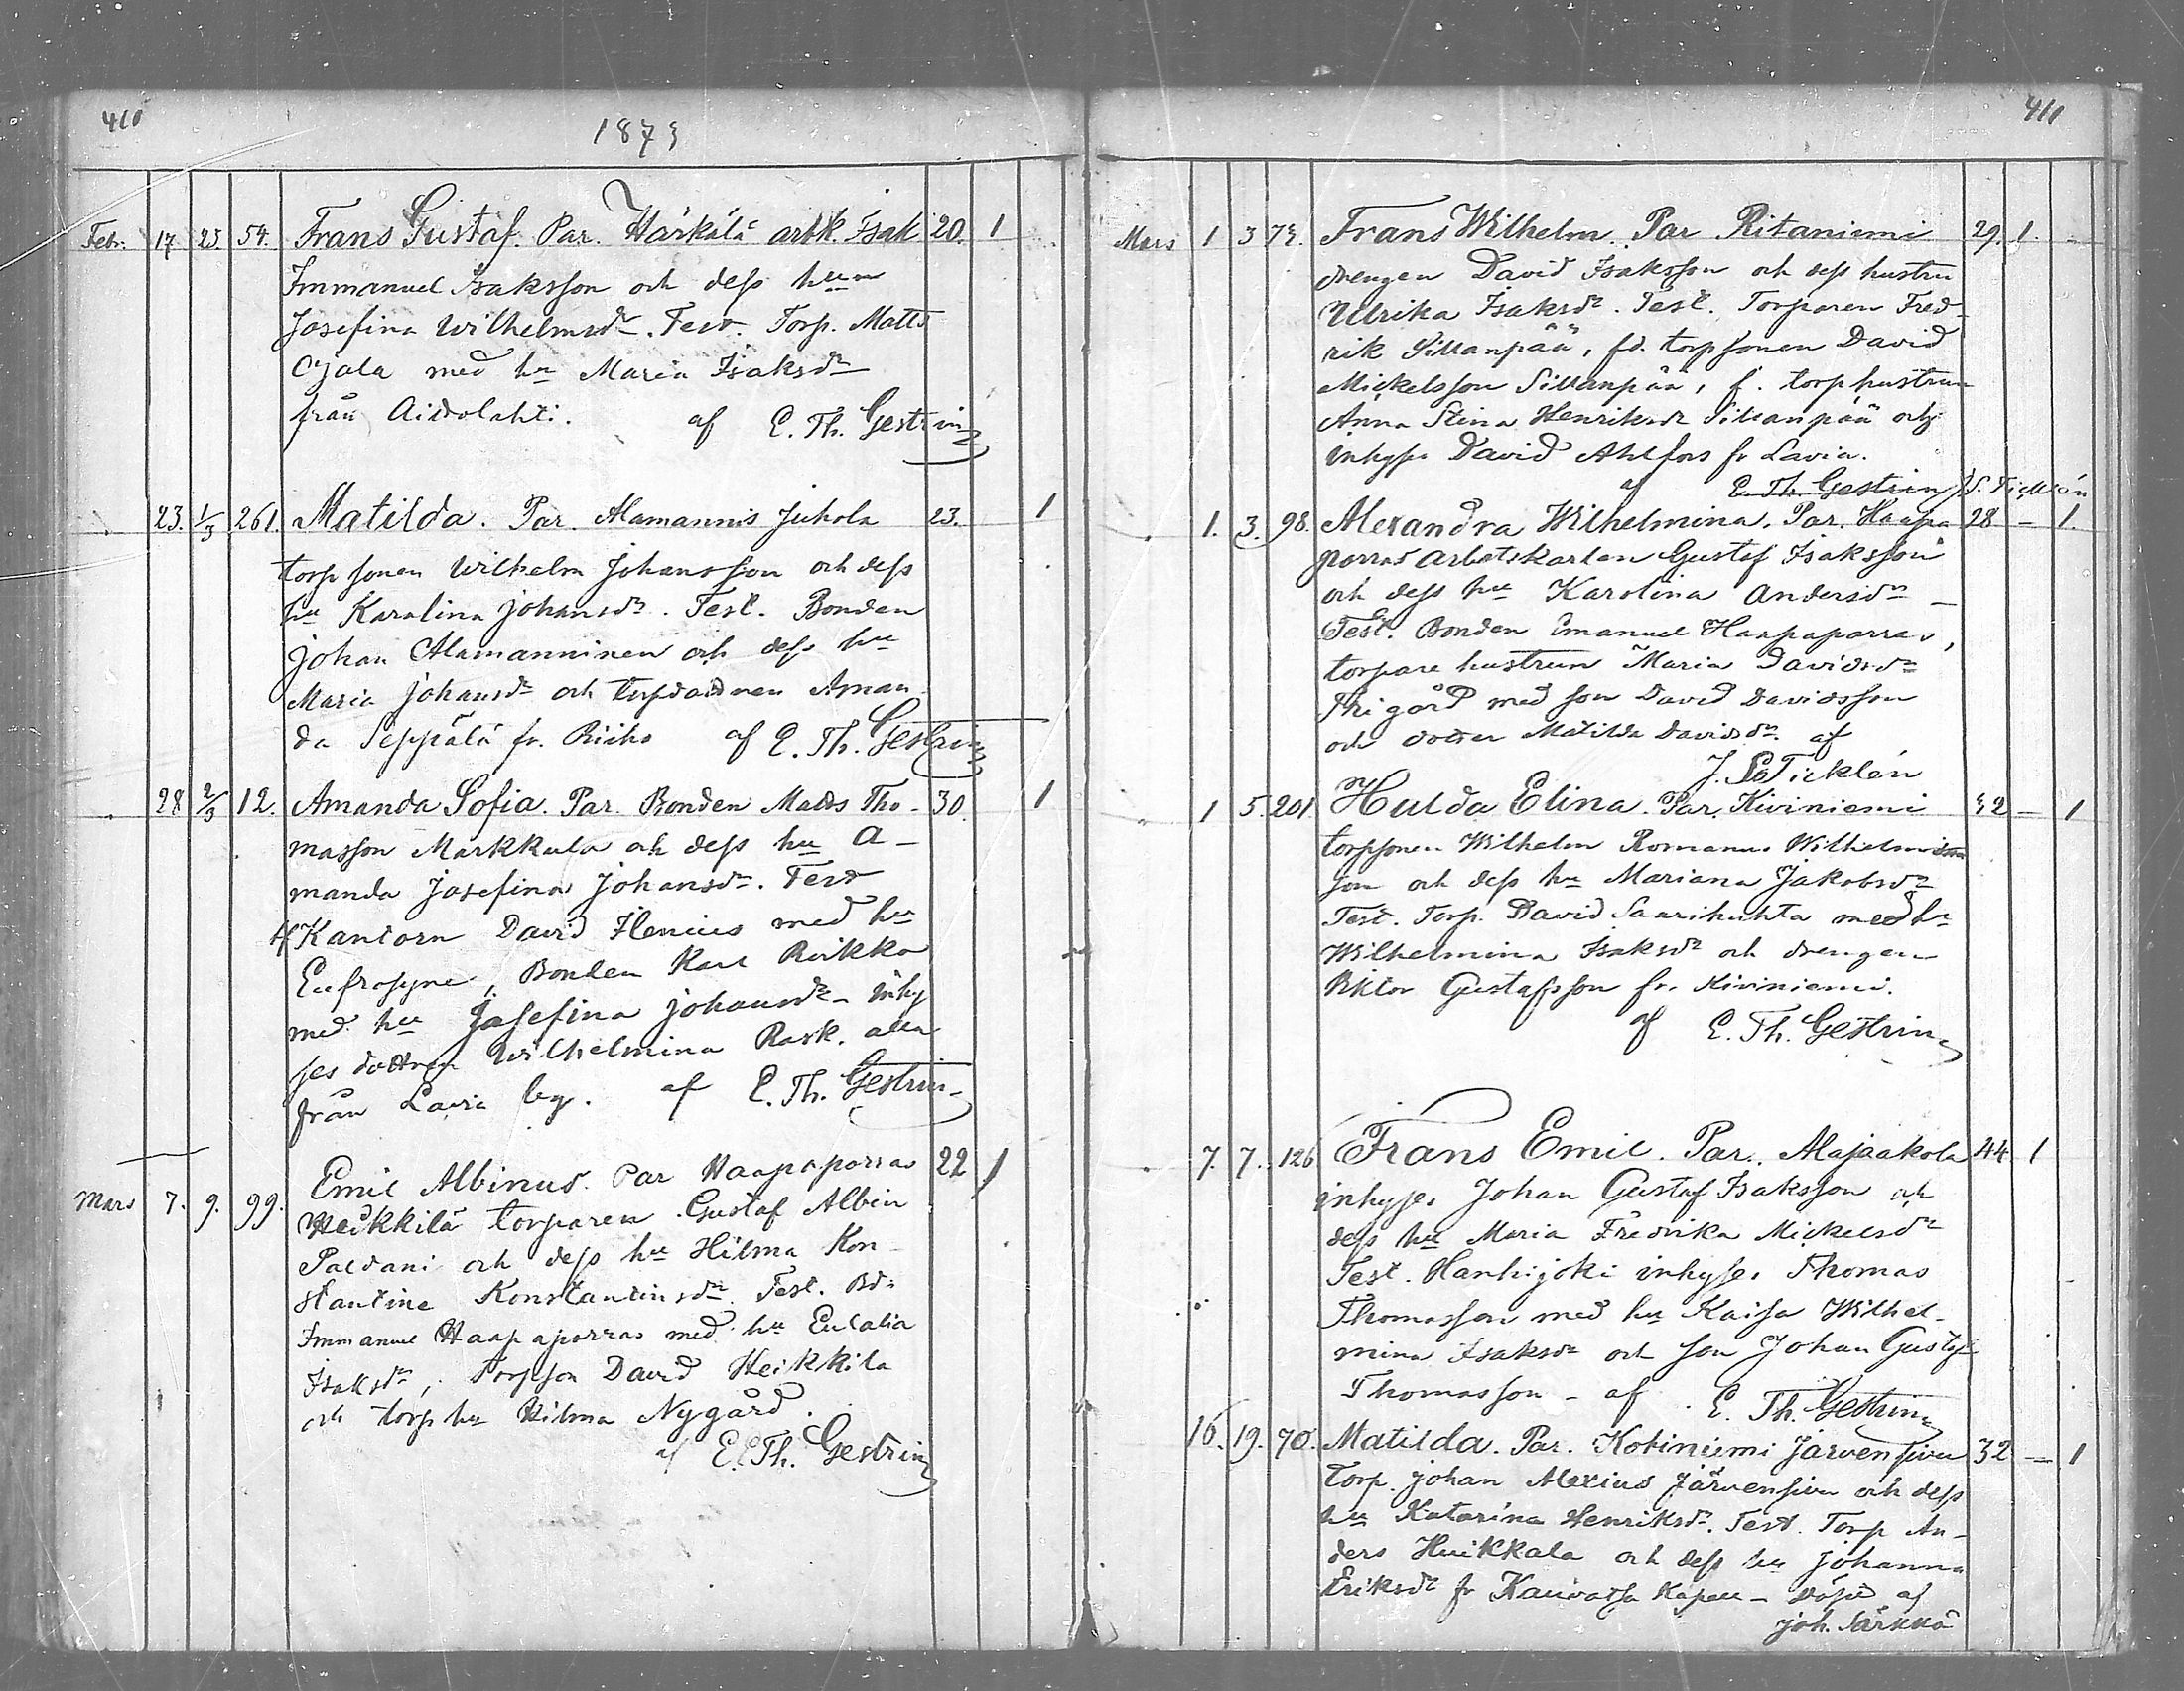 410
1873
Febr. 17. 23. 54. Frans Gustaf. Par. Härkälä arbk. Isak 20. 1
Immanuel Isaksson och dess hu
Josefina Wilhelmsdr. Test. Torp. Matts
Ojala med hu Maria Isaksdr
från Aidolahti. af E. Th. Gestrin
23. 1/3 261. Matilda. Par. Alamannis Juhola 23. 1
torpsonen Wilhelm Johansson och dess
hu Karalina Johansdr. Test. Bonden
Johan Alamanninen och dess hu
Maria Johansdr och torpdottren Aman
da Seppälä fr. Riiho af E. Th. Gestrin
28 2/3 12. Amanda Sofia. Par. Bonden Matts Tho- 30. 1
masson Markkula och dess hu A-
manda Josefina Johansdr. Test
Kantorn David Ilenius med hu
Eufrosyne, Bonden Karl
med hu Josefina Johansdr - inhy
ses dottren Wilhelmina Rask. alla
från Lavia by. af E. Th. Gestrin
Emil Albinus. Par Haapaporras 22 1
Mars 7. 9. 99. Heikkilä torparen Gustaf Albin
Paldani och dess hu Hilma Kon-
stantine Konstantinsdr. Test. Bd:
Immanuel Haapaporras med hu Eulalia
Isaksdr, Torpson David Heikkila
och torp hu Hilma Nygård.
af E. Th. Gestrin
411
Mars 1 3 73. Frans Wilhelm. Par Ritaniemi 29. 1. -
drengen David Isaksson och dess hustru
Ulrika Isaksdr. Test. Torparen Fred-
rik Sillanpää, fd. torpsonen David
Mickelsson Sillanpää, f. torphustrun
Anna Stina Henriksdr Sillanpää och
inhyses David Ahlfors fr Lavia.
af E. Th. Gestrin J. S. Ticklén
1. 3. 98. Alexandra Wilhelmina. Par. Haapa 28 - 1.
porras arbetskarlen Gustaf Isaksson
och dess hu Karolina Andersdr -
Test. Bonden Emanuel Haapaporras,
torpare hustrun Maria Davidsdr
med son David Davidsson
och dotter Matilda Davidsdr. af
J. S. Ticklén
1 5. 201 Hulda Elina. Par. Kiviniemi 32 - 1
torpsonen Wilhelm Romanus Wilhelms
son och dess hu Mariana Jakobsdr
Test. Torp. David Saarihuhta med hu
Wilhelmina Isaksdr och drengen
Viktor Gustafsson fr. Kiviniemi.
af E. Th. Gestrin
7. 7. 126 Frans Emil. Par. Alajaakola 44 1
inhyses Johan Gustaf Isaksson och
dess hu Maria Fredrika Mickelsdr
Test. Hanhijoki inhyses Thomas
Thomasson med hu Kaisa Wilhel-
mina Isaksdr och son Johan Gustaf
Thomasson - af E. Th. Gestrin
16. 19. 70. Matilda. Par. Kotiniemi Järvensivu 32 - 1
Torp. Johan Alexius Järvensivu och dess
hu Katarina Henriksdr. Test. Torp An-
ders Huikkala och dess hu Johanna
Eriksdr fr Kauvatsa Kapell - döpt af
Joh. Särkkä